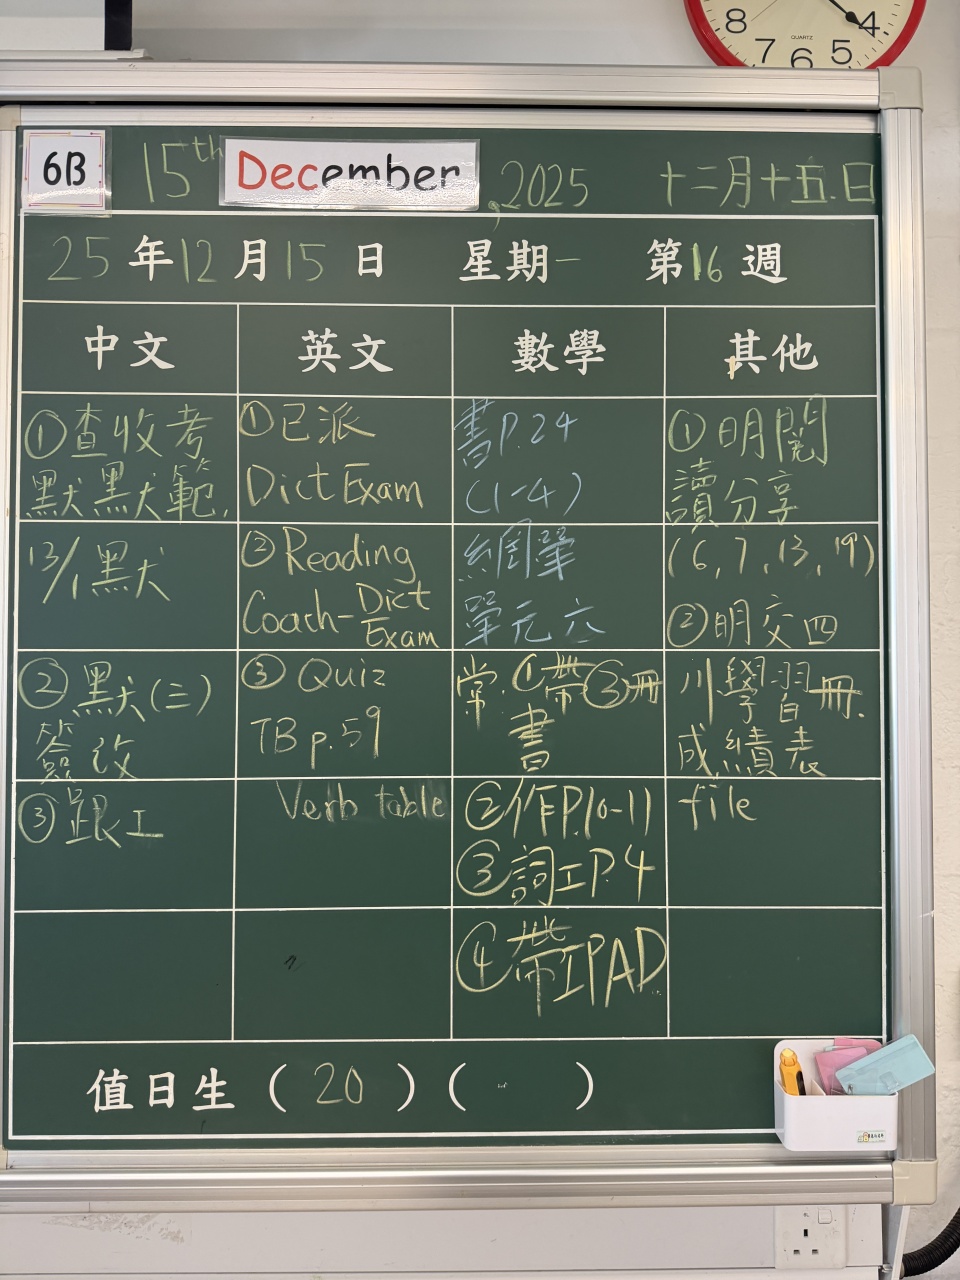 8
7
6
5
4
QUARTZ
6B 15th December, 2025 十二月十五.日
25年12月15日 星期一 第16週
中文 英文 數學 其他
①查收考
默默範.
13/1默
②默(三)
簽改
③跟工
①已派
Dict Exam
②Reading
Coach-Dict
Exam
③ Quiz
TB p.59
Verb table
書P.24
(1-4)
網單
單元六
常.①帶③冊
書
②作P.10-11
③詞工P.4
④帶IPAD
①明閱
讀分享
(6,7,13,19)
②明交四
川學習冊.
成績表
file
值日生(20)( )